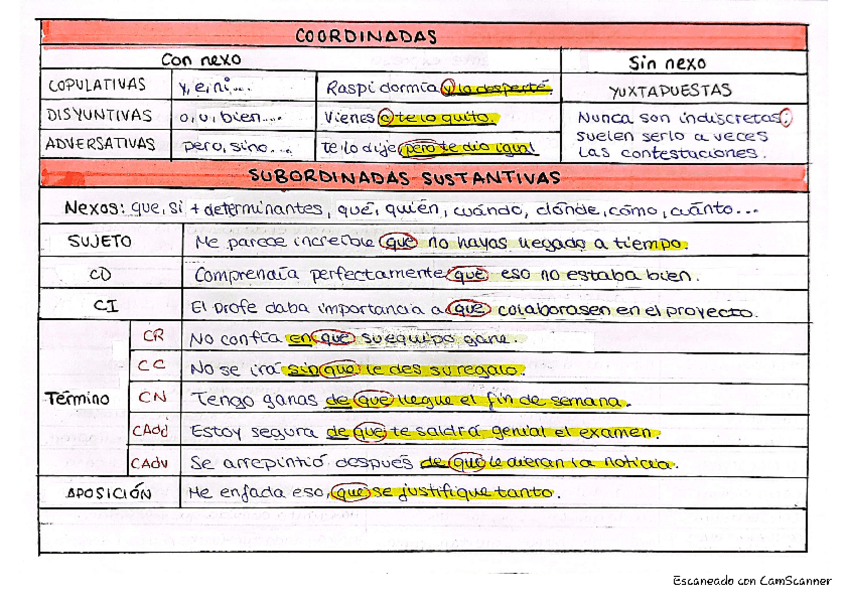 COORDINADAS
Con nexo
Sin nexo
COPULATIVAS y, e, ni... Raspi dormía y la desperté. YUXTAPUESTAS
DISYUNTIVAS o, u, bien.... Vienes o te lo quito. Nunca son indiscretas;
suelen serlo a veces
ADVERSATIVAS pero, sino... te lo dije, pero te dio igual
las contestaciones.
SUBORDINADAS SUSTANTIVAS
Nexos: que, si + determinantes, qué, quién, cuándo, dónde, cómo, cuánto...
SUJETO Me parece increíble que no hayas llegado a tiempo.
CD Comprendía perfectamente que eso no estaba bien.
CI El profe daba importancia a que colaborasen en el proyecto.
Término
CR No confía en que su equipo gane.
CC No se irá sin que le des su regalo.
CN Tengo ganas de que llegue el fin de semana.
CAdj Estoy segura de que te saldrá genial el examen.
CAdv Se arrepintió después de que le dieran la noticia.
APOSICIÓN Me enfada eso, que se justifique tanto.
Escaneado con CamScanner